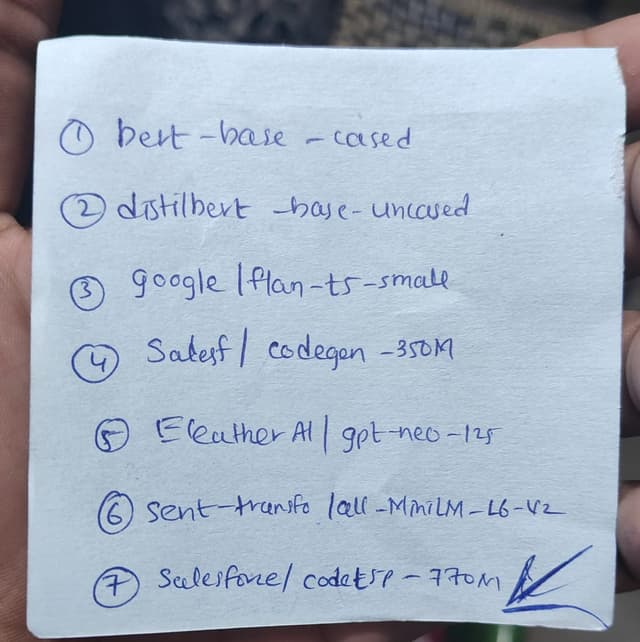 ① bert-base-cased
② distilbert-base-uncased
③ google/flan-t5-small
④ Salesf/codegen-350M
⑤ EleutherAI/gpt-neo-125
⑥ sent-transfo/all-MiniLM-L6-V2
⑦ Salesforce/codet5p-770M